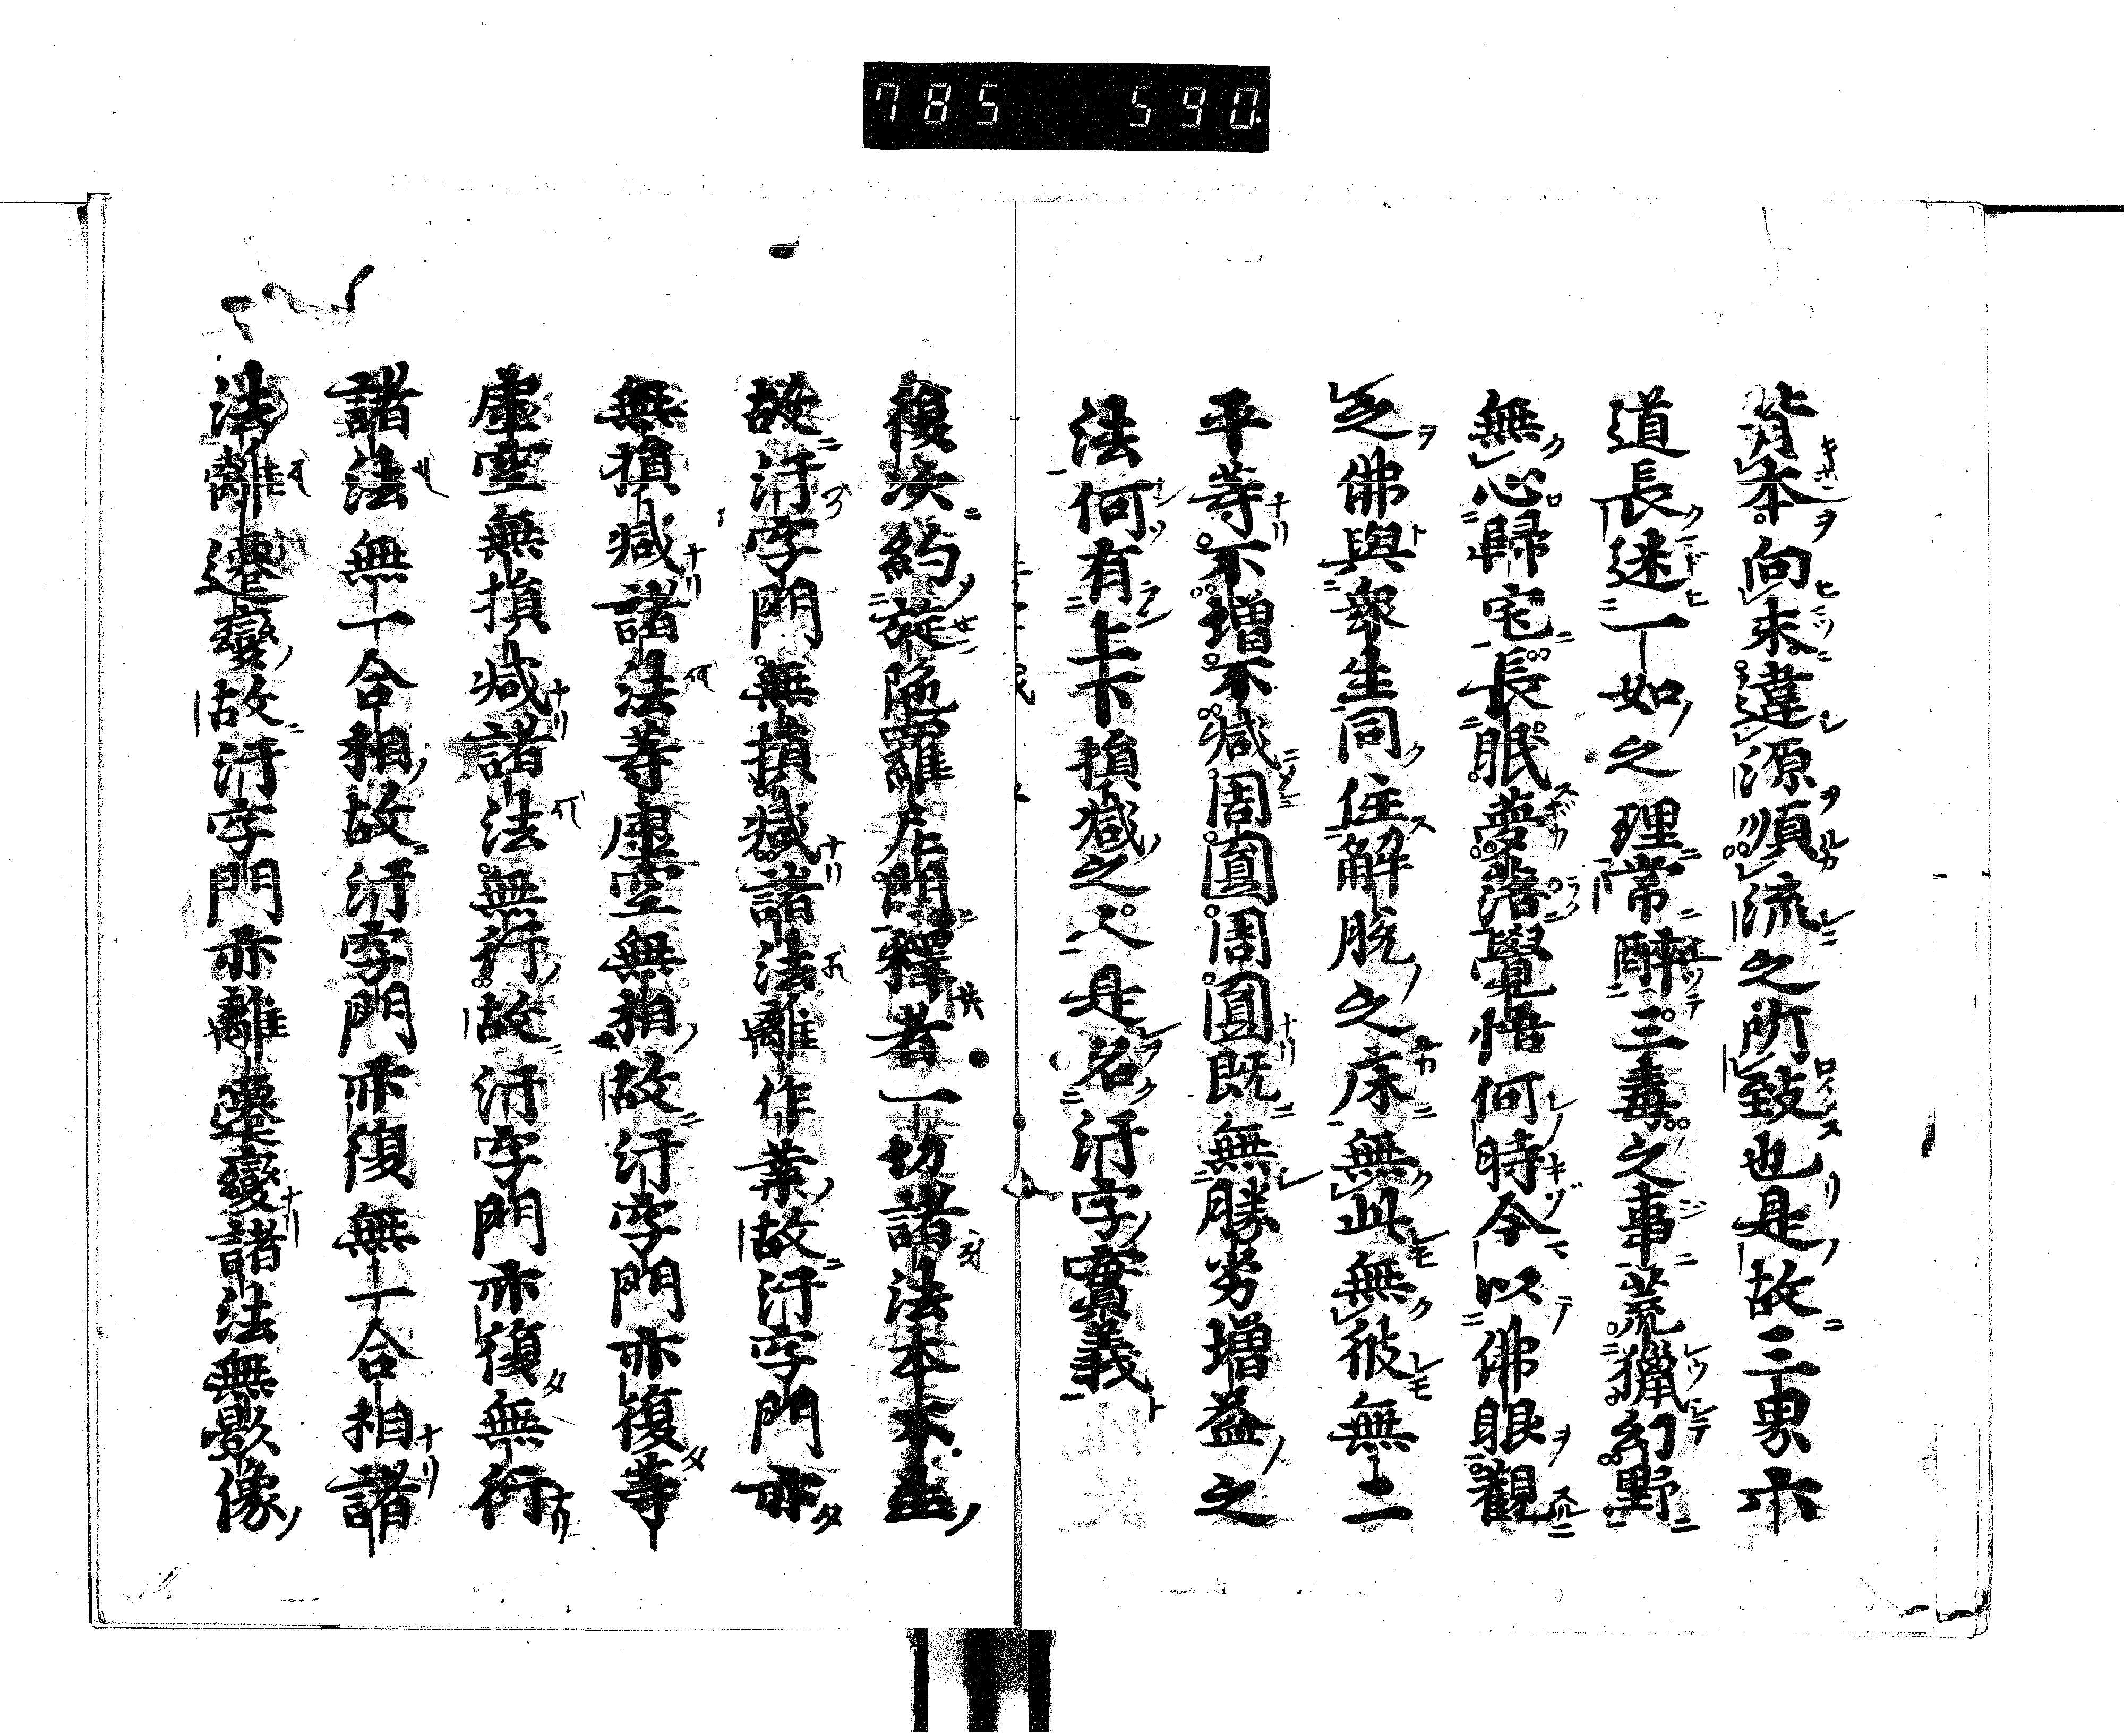 785 590
背本向末違源順流之所致也是故三界六
道長迷一如之理常醉三毒之事荒獵幻野
無心歸宅長眠夢落覺悟何時今以佛眼觀
之佛與衆生同住解脱之床無此無彼無二
平等不增不減周圓周圓既無勝劣增益之
法何有上下損減之人是名汙字實義
復次約旋陀羅尼門釋者一切諸法本不生
故汙字門無損減諸法離作業故汙字門亦
無損減諸法等虚空無相故汙字門亦復等
虚空無損減諸法無行故汙字門亦復無行
諸法無一合相故汙字門亦復無一合相諸
法離遷變故汙字門亦離遷變諸法無影像